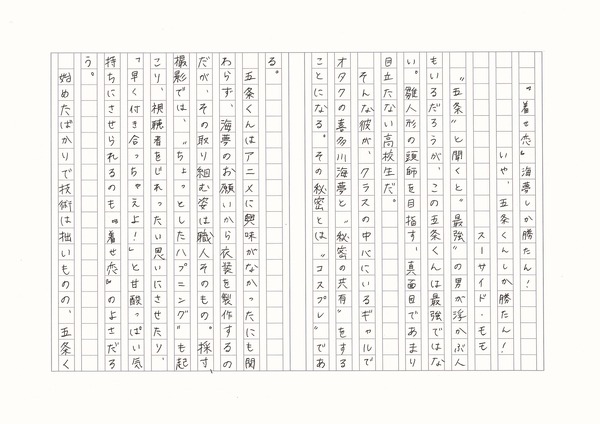 『着せ恋』海夢しか勝たん！
いや、五条くんしか勝たん！
スーサイド・モモ
“五条”と聞くと“最強”の男が浮かぶ人
もいるだろうが、この五条くんは最強ではな
い。雛人形の頭師を目指す、真面目であまり
目立たない高校生だ。
そんな彼が、クラスの中心にいるギャルで
オタクの喜多川海夢と“秘密の共有”をする
ことになる。その秘密とは“コスプレ”であ
る。
五条くんはアニメに興味がなかったにも関
わらず、海夢のお願いから衣装を製作するの
だが、その取り組む姿は職人そのもの。採寸、
撮影では、“ちょっとしたハプニング”も起
こり、視聴者をじれったい思いにさせたり、
「早く付き合っちゃえよ！」と甘酸っぱい気
持ちにさせられるのも『着せ恋』のよさだろ
う。
始めたばかりで技術は拙いものの、五条く